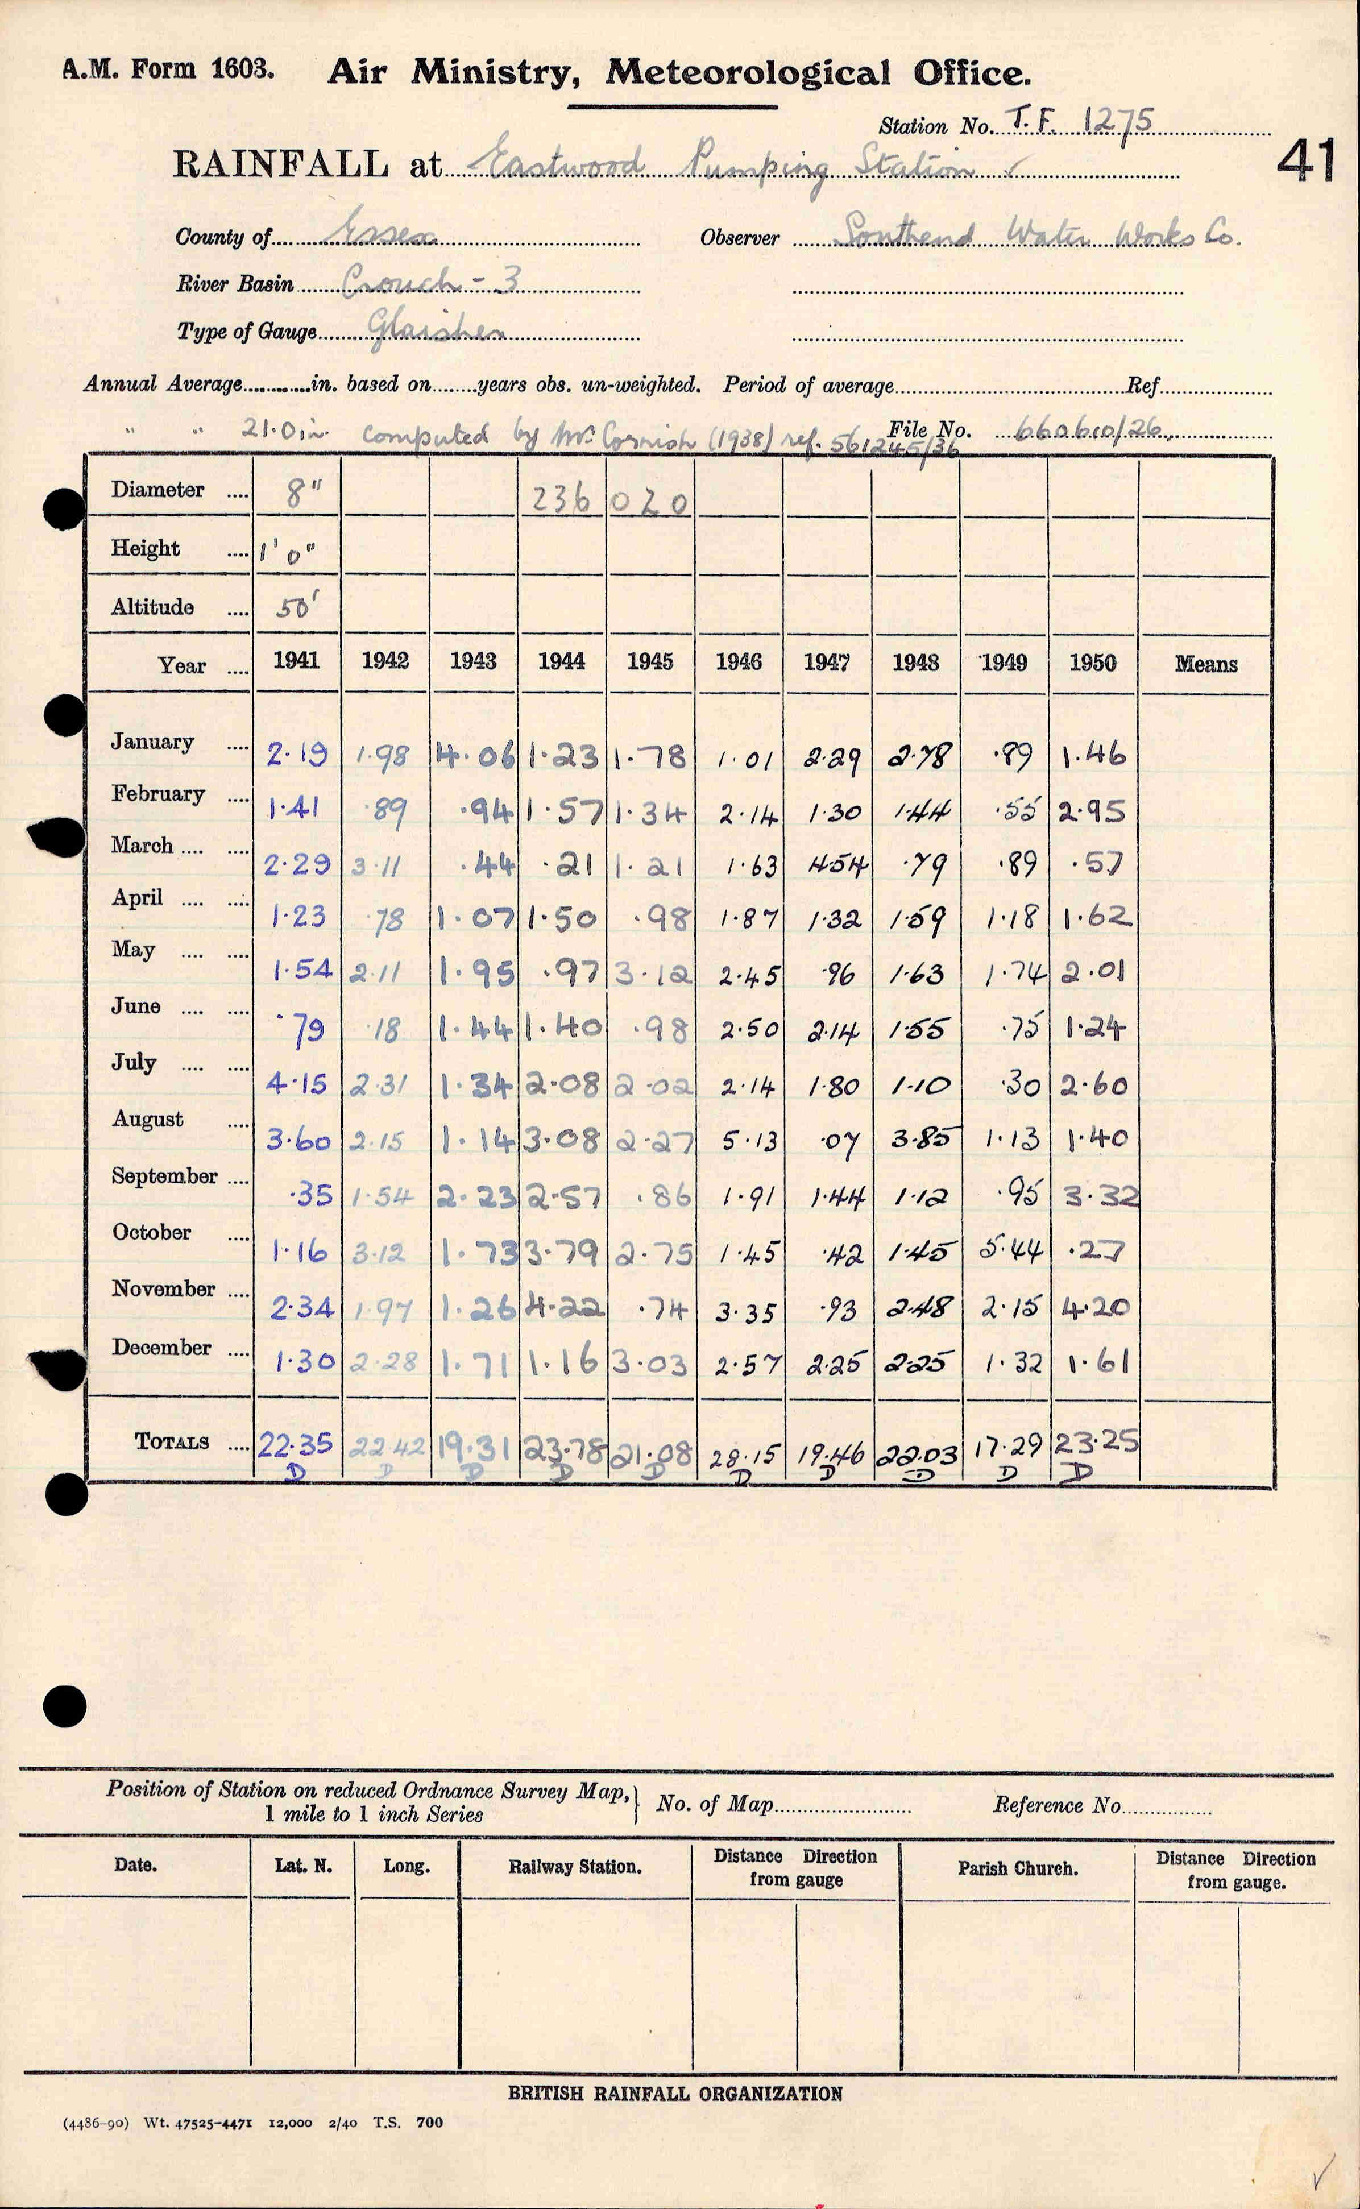 A.M. Form 1603. Air Ministry, Meteorological Office.
Station No. T.F. 1275
41
RAINFALL at Eastwood Pumping Station ✓
County of Essex Observer Southend Water Works Co.
River Basin Crouch - 3
Type of Gauge Glaisher
Annual Average...........in. based on........years obs. un-weighted. Period of average.............Ref.............
" " 21.0 in computed by Mr Cornish (1938) ref. 561245/36 File No. 660610/26.
Diameter .... 8" 236 020
Height .... 1' 0"
Altitude .... 50'
Year .... 1941 1942 1943 1944 1945 1946 1947 1948 1949 1950 Means
January .... 2.19 1.98 4.06 1.23 1.78 1.01 2.29 2.78 .89 1.46
February .... 1.41 .89 .94 1.57 1.34 2.14 1.30 1.44 .55 2.95
March .... .... 2.29 3.11 .44 .21 1.21 1.63 4.54 .79 .89 .57
April .... .... 1.23 .78 1.07 1.50 .98 1.87 1.32 1.59 1.18 1.62
May .... .... 1.54 2.11 1.95 .97 3.12 2.45 .96 1.63 1.74 2.01
June .... .... .79 .18 1.44 1.40 .98 2.50 2.14 1.55 .75 1.24
July .... .... 4.15 2.31 1.34 2.08 2.02 2.14 1.80 1.10 .30 2.60
August .... 3.60 2.15 1.14 3.08 2.27 5.13 .07 3.85 1.13 1.40
September .... .35 1.54 2.23 2.57 .86 1.91 1.44 1.12 .95 3.32
October .... 1.16 3.12 1.73 3.79 2.75 1.45 .42 1.45 5.44 .27
November .... 2.34 1.97 1.26 4.22 .74 3.35 .93 2.48 2.15 4.20
December .... 1.30 2.28 1.71 1.16 3.03 2.57 2.25 2.25 1.32 1.61
TOTALS .... 22.35 22.42 19.31 23.78 21.08 28.15 19.46 22.03 17.29 23.25
D D D D D D D D D D
Position of Station on reduced Ordnance Survey Map, 1 mile to 1 inch Series } No. of Map............ Reference No............
Date. Lat. N. Long. Railway Station. Distance Direction from gauge Parish Church. Distance Direction from gauge.
BRITISH RAINFALL ORGANIZATION
(4486-90) Wt. 47525-4471 12,000 2/40 T.S. 700
✓